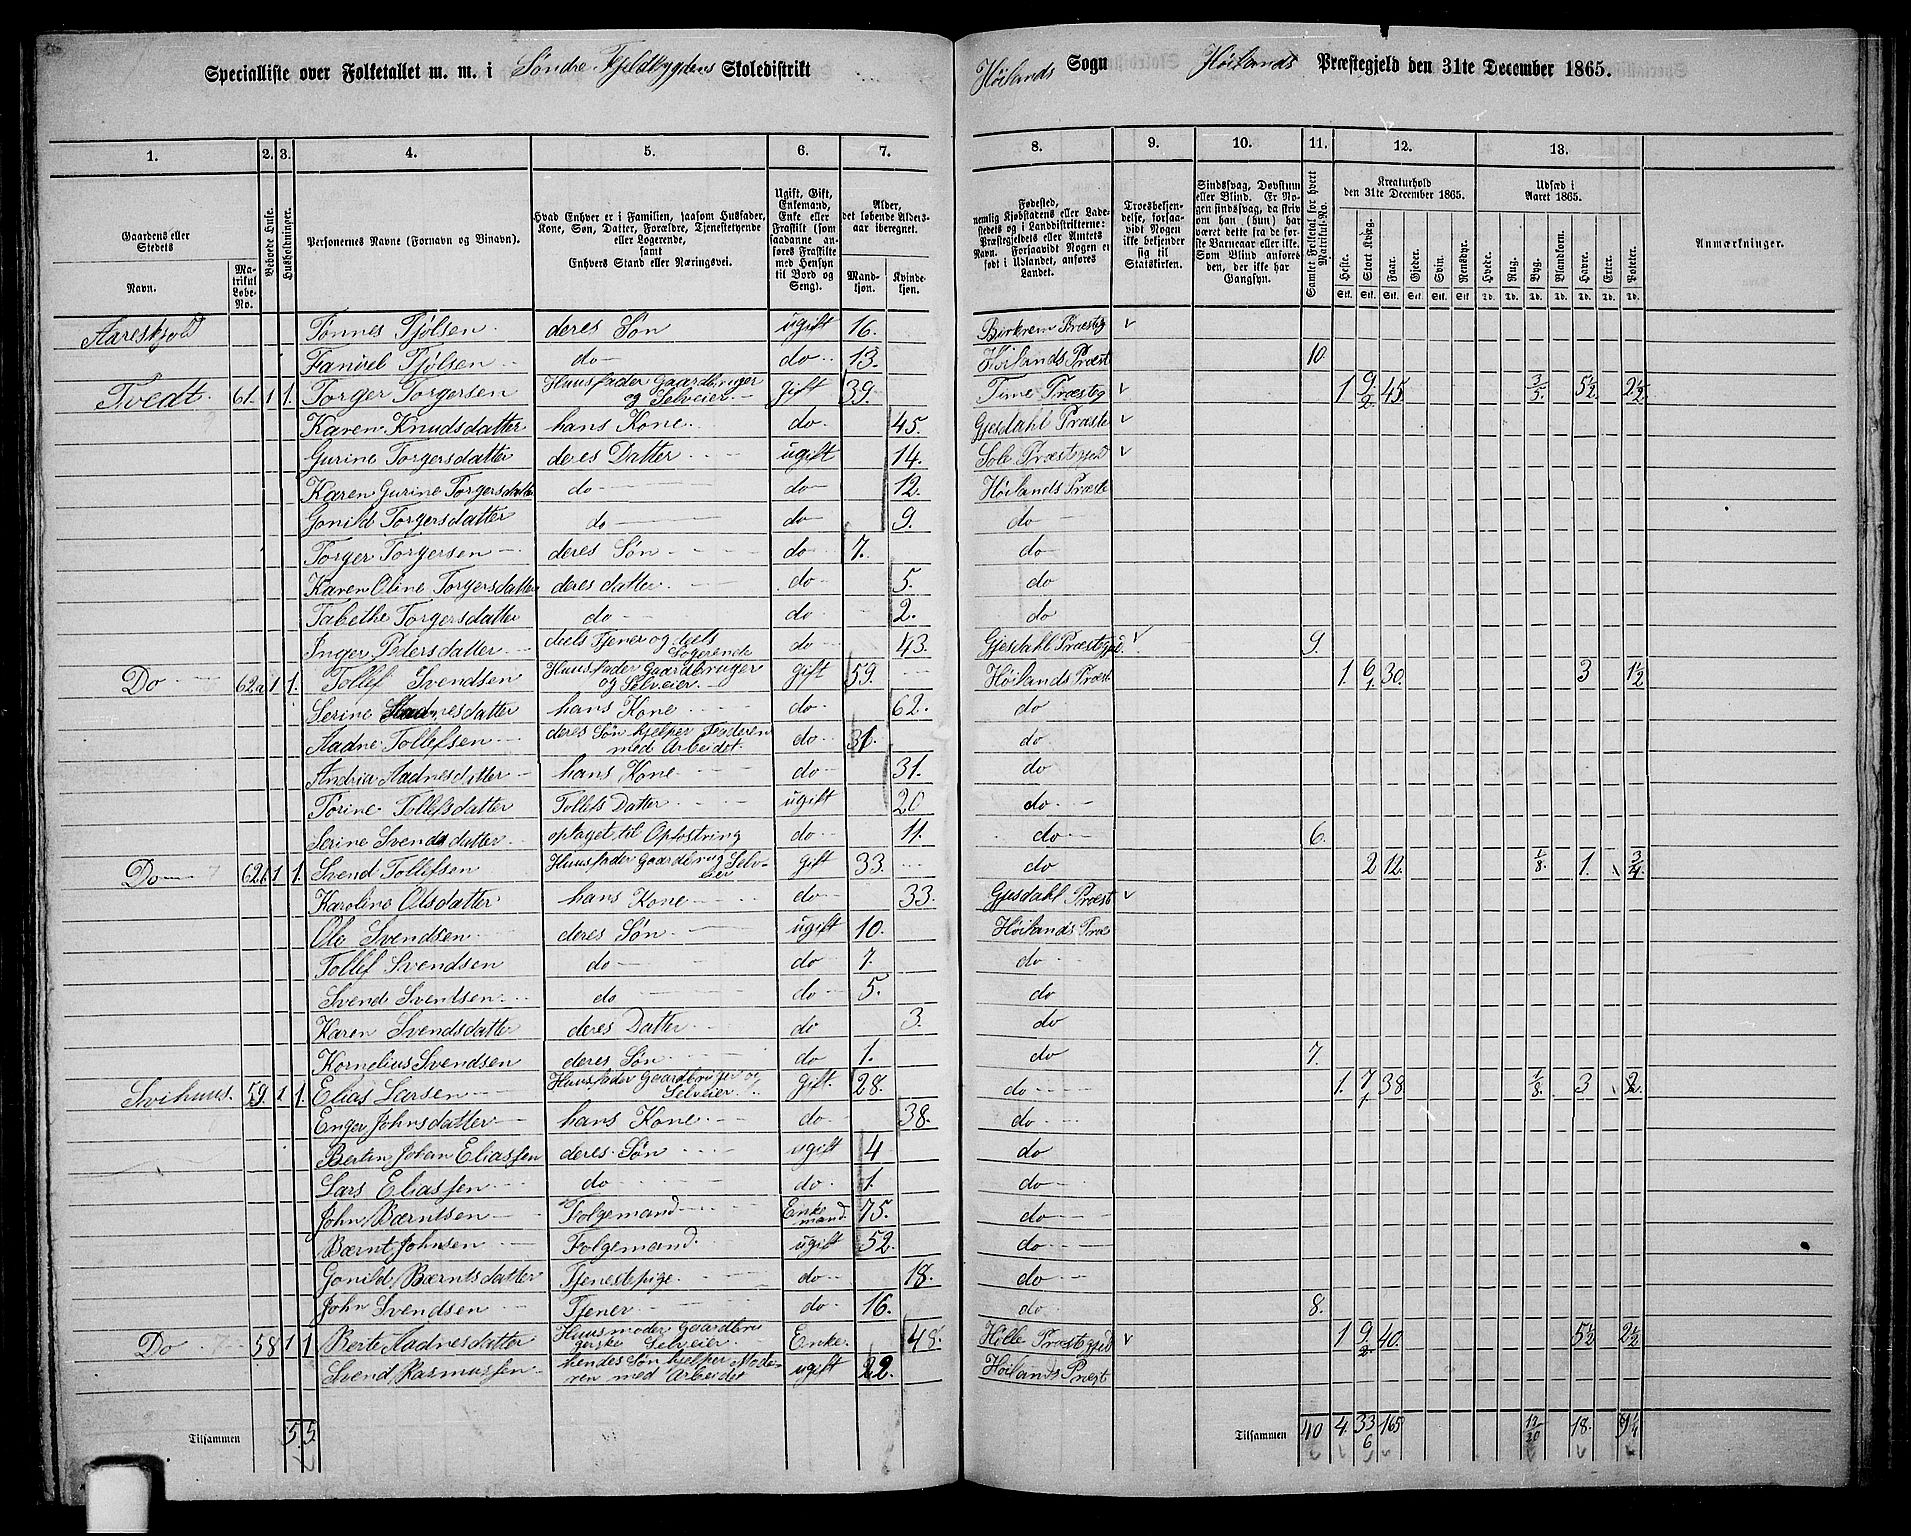 Specialliste over Folketallet m. m. i Søndre Fjeldbygdens Skoledistrikt Høilands Sogn Høilands Præstegjeld den 31te December 1865.
1. 2. 3. 4. 5. 6. 7. 8. 9. 10. 11. 12. 13.
Gaardens eller Stedets
Navn.
Matrikul Løbe-No.
Beboede Huse.
Husholdninger.
Personernes Navne (Fornavn og Binavn).
Hvad Enhver er i Familien, saasom Husfader, Kone, Søn, Datter, Forældre, Tjenestetyende eller Logerende, samt Enhvers Stand eller Næringsvei.
Ugift, Gift, Enkemand, Enke eller Fraskilt (som saadanne anføres Fraskilte med Hensyn til Bord og Seng).
Alder, det løbende Alders-aar iberegnet.
Mandkjøn. Kvindekjøn.
Fødested, nemlig Kjøbstadens eller Ladestedets og i Landdistrikterne: Præstegjeldets eller Amtets Navn. Forsaavidt Nogen er født i Udlandet, anføres Landet.
Troesbekjendelse, forsaavidt Nogen ikke bekjender sig til Statskirken.
Sindssvag, Døvstum eller Blind. Er Nogen sindssvag, da skriv han (hun) har været dette fra de første Barneaar eller ei. Som Blind anføres den, der ikke har Gangsyn.
Samlet Folketal for hvert Matrikul-No.
Kreaturhold den 31te December 1865.
Heste. Stort Kvæg. Faar. Gjeder. Svin. Rensdyr.
Udsæd i Aaret 1865.
Hvede. Rug. Byg. Blandkorn. Havre. Erter. Poteter.
Anmærkninger.
Aareskjold Tønnes Tjølsen deres Søn ugift 16. Birkrem Præsteg
Tjølsen do do 13. Høilands Præst 10.
Tvedt 61. 1 1. Torger Torgersen Huusfader Gaardbruger og Selveier gift 39. Time Præsteg 1 9/2 45 3/5 5½ 2½
Karen Knudsdatter hans Kone do 45. Gjesdahl Præste
Gurine Torgersdatter deres Datter ugift 14. Sole Præstegjed
Karen Gurine Torgersdatter do do 12. Høilands Præste
Gonild Torgersdatter do do 9. do
Torger Torgersen deres Søn do 7. do
Karen Oline Torgersdatter deres datter do 5. do
Tabethe Torgersdatter do do 2. do
Inger Pedersdatter deels Tjener og deels Logerende do 43. Gjesdahl Præstegjed 9.
Do 62a 1 1. Tollef Svendsen Huusfader Gaardbruger og Selveier gift 59. Høilands Præst 1. 6/1 30. 3 1½
Serine Aadnesdatter hans Kone do 62. do
Aadne Tollefsen deres Søn hjelper Faderen med Arbeidet do 31. do
Andria Aadnesdatter hans Kone do 31. do
Torine Tollefsdatter Tollefs Datter ugift 20 do
Serine Svendsdatter optaget til Opfostring do 11. do 6.
Do 62b 1 1. Svend Tollefsen Huusfader Gaardbrug Selveier gift 33. do 2 12. 1/8 1. 3/4
Karoline Olsdatter hans Kone do 33. Gjesdahl Præst
Ole Svendsen deres Søn ugift 10. Høilands Præs
Tollef Svendsen do do 7. do
Svend Sventsen do do 5. do
Karen Svendsdatter deres Datter do 3. do
Kornelius Svendsen deres Søn do 1. do 7.
Svihuus. 59. 1 1. Elias Larsen Huusfader Gaardbruger og Selveier gift 28. do 1. 7/1 38 1/8 3 2.
Enger Johnsdatter hans Kone do 38. do
Bertin Johan Eliassen deres Søn ugift 4 do
Lars Eliassen do do 1. do
John Bærntsen Folgemand Enkemand 75. do
Bærnt Johnsen Folgemand ugift 52. do
Gonild Bærntsdatter Tjenestepige do 18. do
John Svendsen Tjener do 16. do 8.
Do 58 1 1 Berte Aadnesdatter Huusmoder Gaardbrugerske Selveier Enke 48. Hille Præstegjed 1 9/2 40. 5½ 2½
Svend Rasmussen hendes Søn hjelper Moderen med Arbeidet ugift 22. Høilands Præst
Tilsammen 5. 5. Tilsammen 40 4. 33/6 165 19/20 18. 9¼